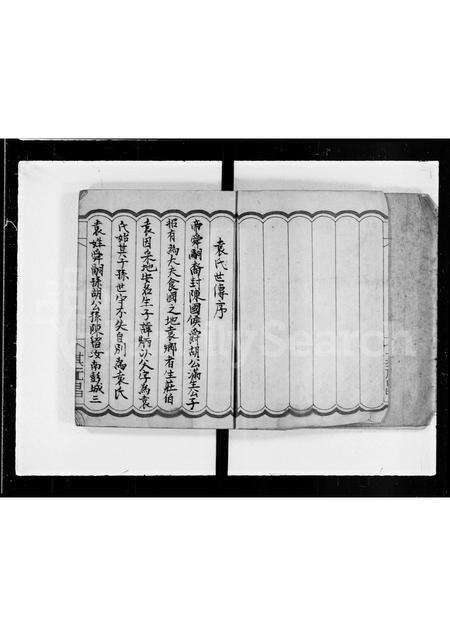 袁氏世傳序
帝舜嗣裔封陳國侯爵胡公滿生公子
招有為大夫食國之地袁鄉者生莊伯
袁因采地出名生子諱以父字為袁
氏始其子孫世守不失自別為袁氏
袁姓舜嗣孫胡公孫陳留汝南彭城三